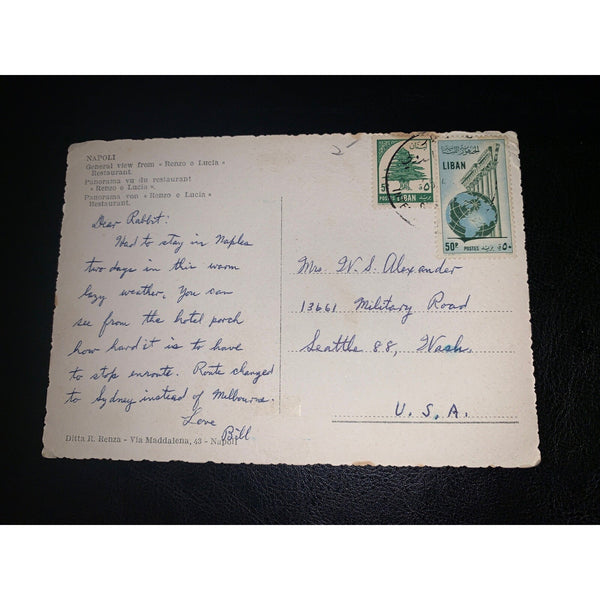 NAPOLI
General view from « Renzo e Lucia »
Restaurant.
Panorama vu du restaurant
« Renzo e Lucia ».
Panorama von « Renzo e Lucia »
Restaurant.
Dear Rabbit:
Had to stay in Naples
two days in this warm
lazy weather. You can
see from the hotel porch
how hard it is to have
to stop enroute. Route changed
to Sydney instead of Melbourne.
Love
Bill
Ditta R. Renza - Via Maddalena, 43 - Napoli
5
POSTES LIBAN
٥
LIBAN
50P POSTES ٥٠
Mrs. W. S. Alexander
13661 Military Road
Seattle 88, Wash.
U. S. A.